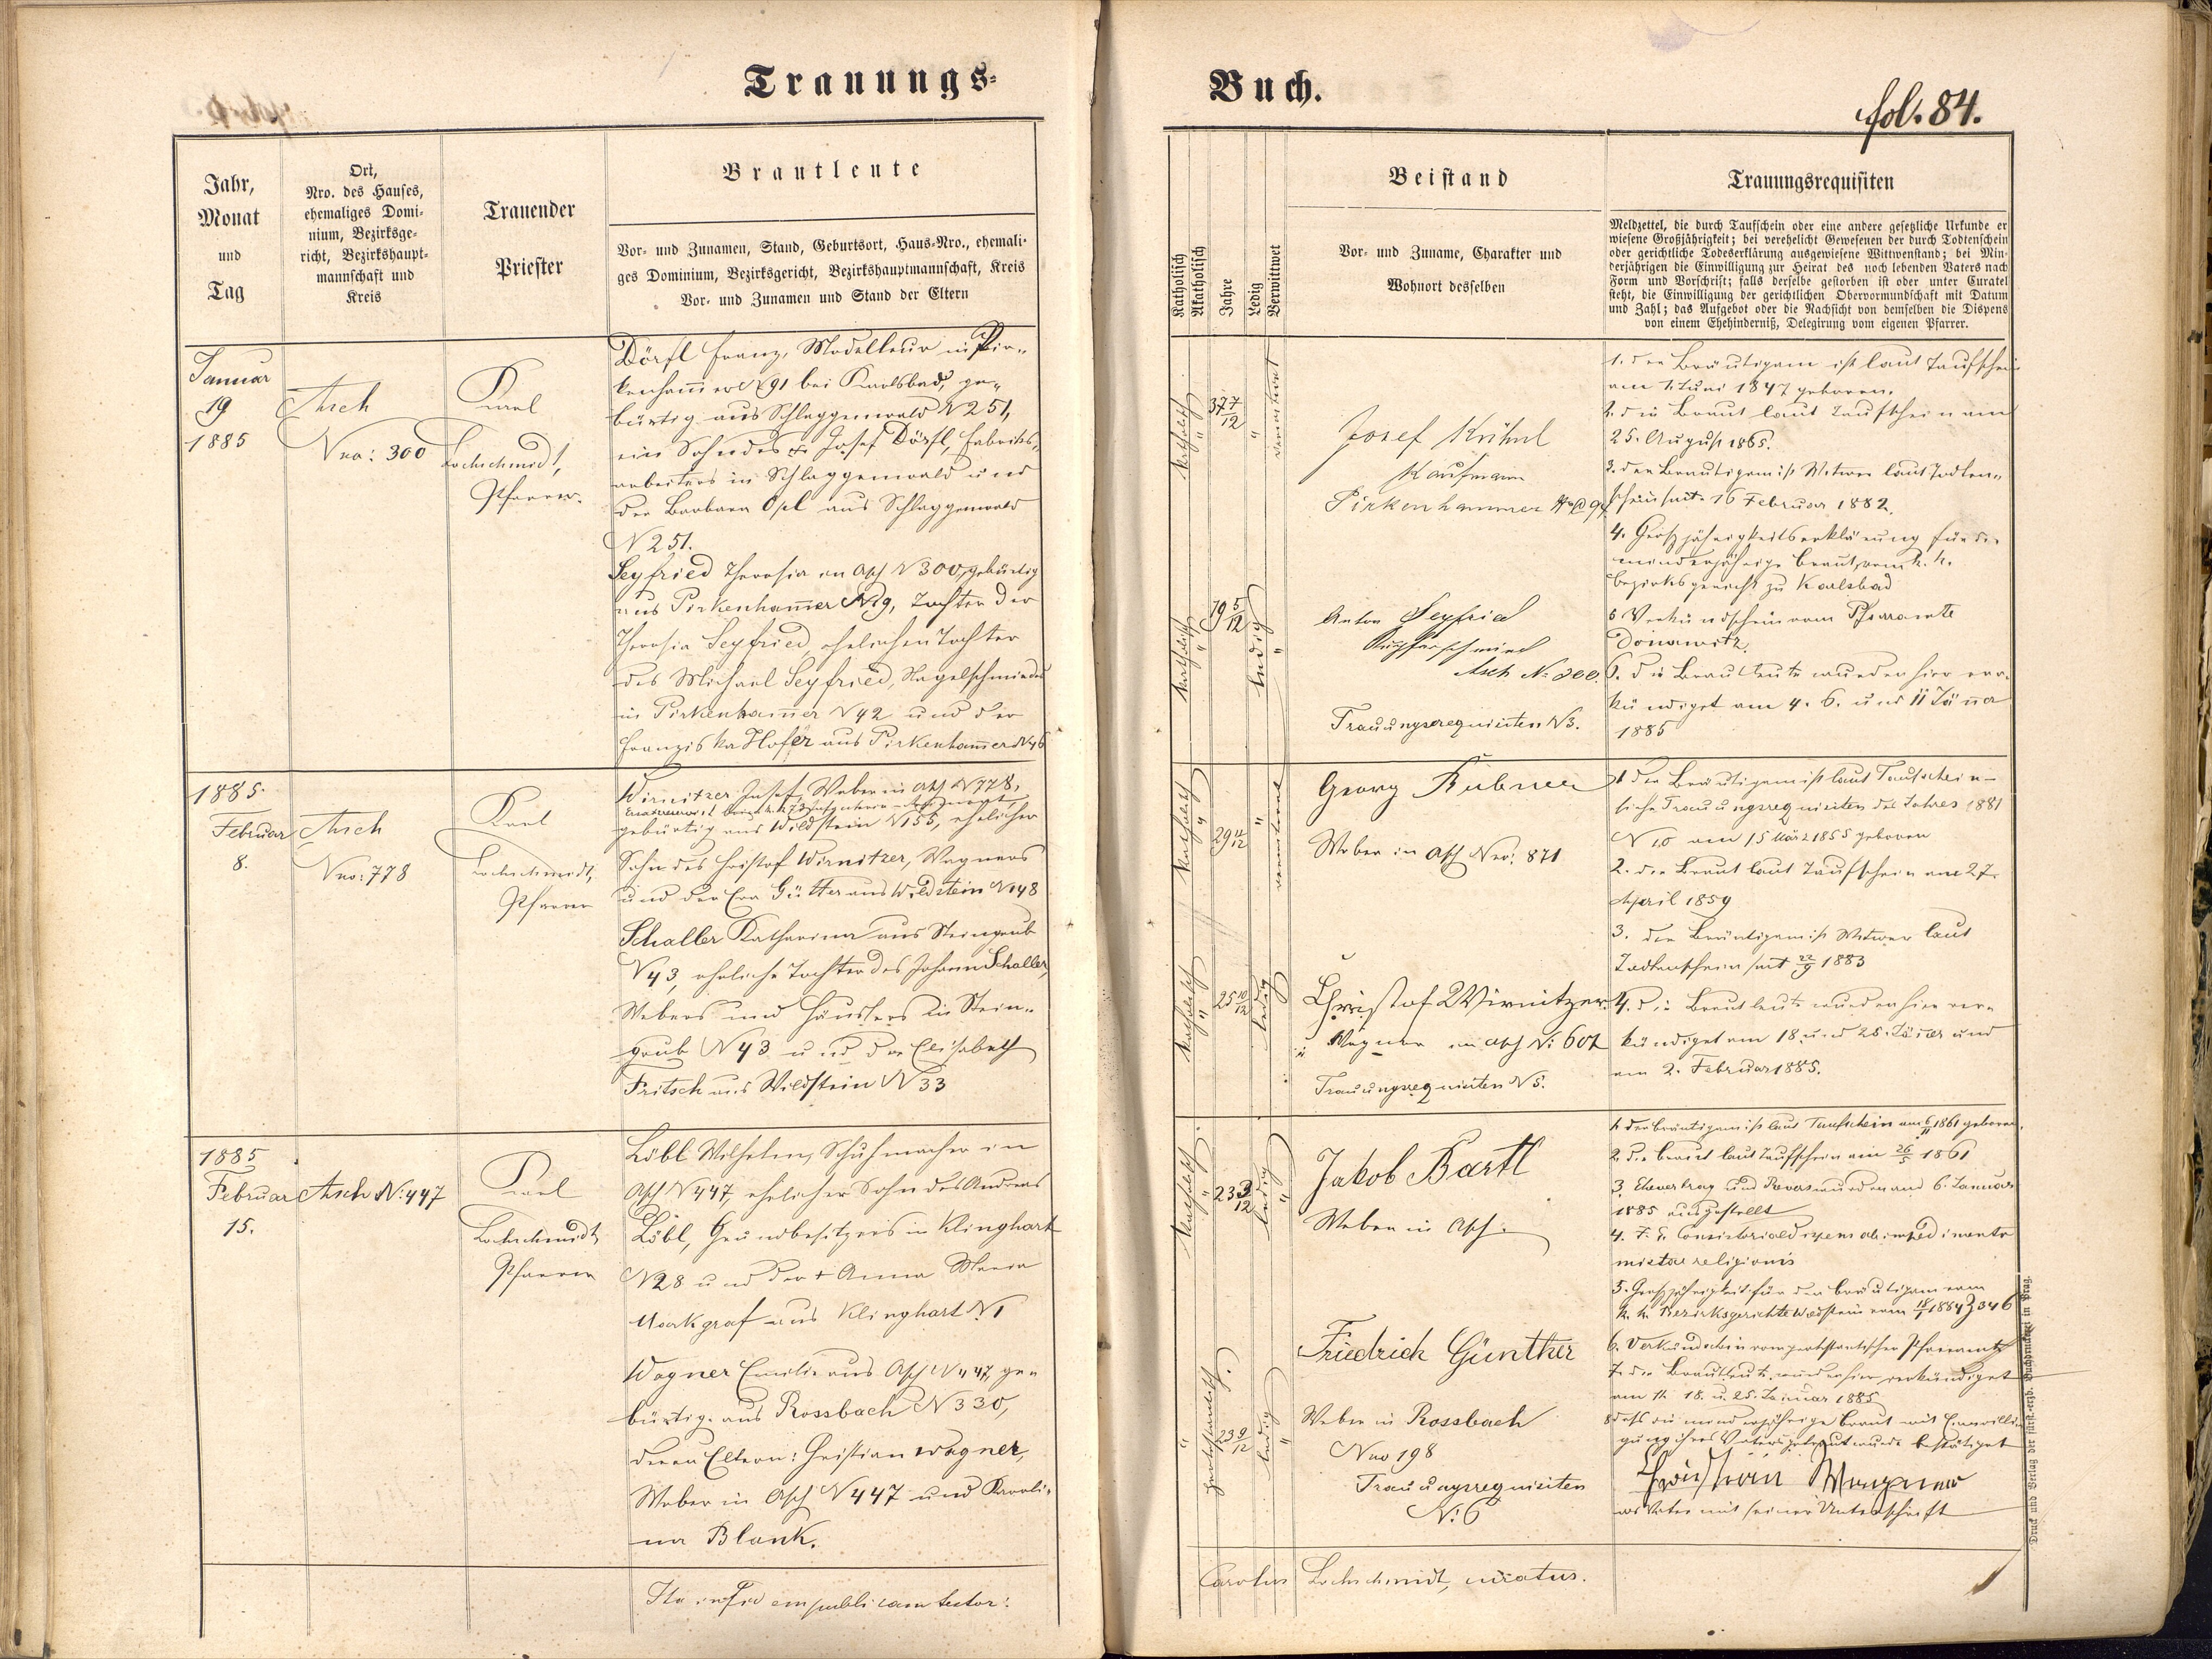 Trauungs-
Buch.
fol. 84.
Jahr,
Monat
und
Tag
Ort,
Nro. des Hauses,
ehemaliges Domi-
nium, Bezirksge-
richt, Bezirkshaupt-
mannschaft und
Kreis
Trauender
Priester
Brautleute
Vor- und Zunamen, Stand, Geburtsort, Haus-Nro., ehemali-
ges Dominium, Bezirksgericht, Bezirkshauptmannschaft, Kreis
Vor- und Zunamen und Stand der Eltern
Katholisch
Akatholisch
Jahre
Ledig
Verwittwet
Beistand
Vor- und Zuname, Charakter und
Wohnort desselben
Trauungsrequisiten
Meldzettel, die durch Taufschein oder eine andere gesetzliche Urkunde er
wiesene Großjährigkeit; bei verehelicht Gewesenen der durch Todtenschein
oder gerichtliche Todeserklärung ausgewiesene Wittwenstand; bei Min-
derjährigen die Einwilligung zur Heirat des noch lebenden Vaters nach
Form und Vorschrift; falls derselbe gestorben ist oder unter Curatel
steht, die Einwilligung der gerichtlichen Obervormundschaft mit Datum
und Zahl; das Aufgebot oder die Nachsicht von demselben die Dispens
von einem Ehehinderniß, Delegirung vom eigenen Pfarrer.
Januar
19
1885
Asch
Nro: 300
Karl
Lochschmidt,
Pfarrer.
Dörfl Franz, Modelleur in Pir-
kenham̄er N 91 bei Karlsbad, ge-
bürtig aus Schlaggenwald N 251,
ein Sohn des Josef Dörfl, Fabriks-
arbeiters in Schlaggenwald und
der Barbara Opl aus Schlaggenwald
N 251.
Seyfried Theresia in Asch N 300, gebürtig
aus Pirkenham̄er N 19, Tochter der
Theresia Seyfried, ehelichen Tochter
des Michael Seyfried, Nagelschmiedes
in Pirkenham̄er N 42 und der
Franziska Hofer aus Pirkenham̄er N 46
katholisch
"
37 7/12
"
verwitwet
katholisch
"
19 5/12
ledig
"
Josef Kühnl
Kaufmann
Pirkenhammer
Anton Seyfried
Kupferschmied
Asch No 300.
Trauungsrequisiten N 3.
1. der Bräutigam ist laut Taufschein
am 1. Juni 1847 geboren.
2. die Braut laut Taufschein am
25. August 1865.
3. der Bräutigam ist Witwer laut Todten-
schein seit 16 Februar 1882.
4. Großjährigkeitserklärung für die
minderjährige Braut vom k. k.
Bezirksgericht zu Karlsbad
5 Verkündschein vom Pfarramte
Donawitz.
6. die Brautleute wurden hier ver-
kündiget am 4. 6. und 11 Jän̄er
1885
1885.
Februar
8.
Asch
Nro: 778
Karl
Lochschmidt,
Pfarrer
Wirnitzer Josef, Weber in Asch N 778,
gebürtig aus Wildstein N 155, ehelicher
Sohn des Christof Wirnitzer, Wagners
und der Eva Gütter aus Wildstein N 148
Schaller Katharina aus Steingrub
N 43, eheliche Tochter des Johann Schaller,
Webers und Häuslers in Stein-
grub N 43 und der Elisabeth
Fritsch aus Wildstein N 33
katholisch
"
29 11/12
"
verwitwet
katholisch
"
25 10/12
ledig
"
Georg Hübner
Weber in Asch Nro: 871
Christof Wirnitzer
Wagner in Asch N: 607
Trauungsrequisiten N 5.
1 der Bräutigam ist laut Taufschein-
siehe Trauungsrequisiten des Jahres 1881
N 10 am 15 März 1855 geboren
2. die Braut laut Taufschein am 27.
April 1859
3. der Bräutigam ist Witwer laut
Todtenschein seit 22/9 1883
4. die Brautleute wurden hier ver-
kündiget am 18. und 25. Jän̄er und
am 2. Februar 1885.
1885
Februar
15.
Asch N: 447
Karl
Lochschmidt,
Pfarrer
Löbl Wilhelm, Schuhmacher in
Asch N 447, ehelicher Sohn des Andreas
Löbl, Grundbesitzers in Klinghart
N 28 und der + Anna Maria
Markgraf aus Klinghart N 1
Wagner Emilie aus Asch N 447, ge-
bürtig aus Rossbach N 330,
deren Eltern: Christian Wagner,
Weber in Asch N 447 und Karoli-
na Blank.
katholisch
"
23 3/12
ledig
"
"
protestantisch.
23 9/12
ledig
"
Jakob Bartl
Weber in Asch.
Friedrich Günther
Weber in Rossbach
Nro 198
Trauungsrequisiten
N: 6
1. der Bräutigam ist laut Taufschein am 6/11 1861 geboren.
2. die Braut laut Taufschein am 26/5 1861
3. Ehevertrag und Revers wurden am 6. Januar
1885 ausgestellt
4. F. E. Consistorialdispens ab impedimento
mixtae religionis
5. Großjährigkeit für den Bräutigam vom
k. k. Bezirksgerichte Wildstein vom 18/1 1884 Z 346
6. Verkündschein vom protestantischen Pfarramt
7. die Brautleute wurden hier verkündiget
am 11. 18. u. 25. Januar 1885
8 daß die minderjährige Braut mit Einwilli-
gung ihres Vaters getraut wurde bestätiget
Christian Wagner
als Vater mit seiner Unterschrift
Ita in fidem publicam testor:
Carolus Lochschmidt, curatus.
Druck und Verlag der fürst.-erzb. Buchdruckerei in Prag.